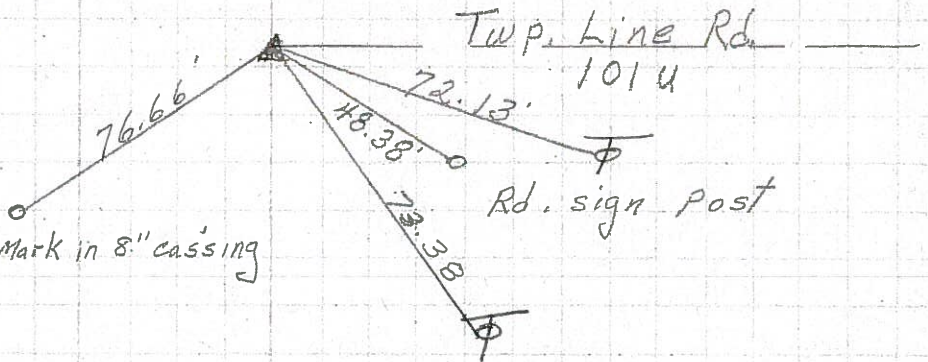 Twp. Line Rd.
101 U
76.66'
72.13'
48.38'
73.38
Rd. sign post
Mark in 8" cassing